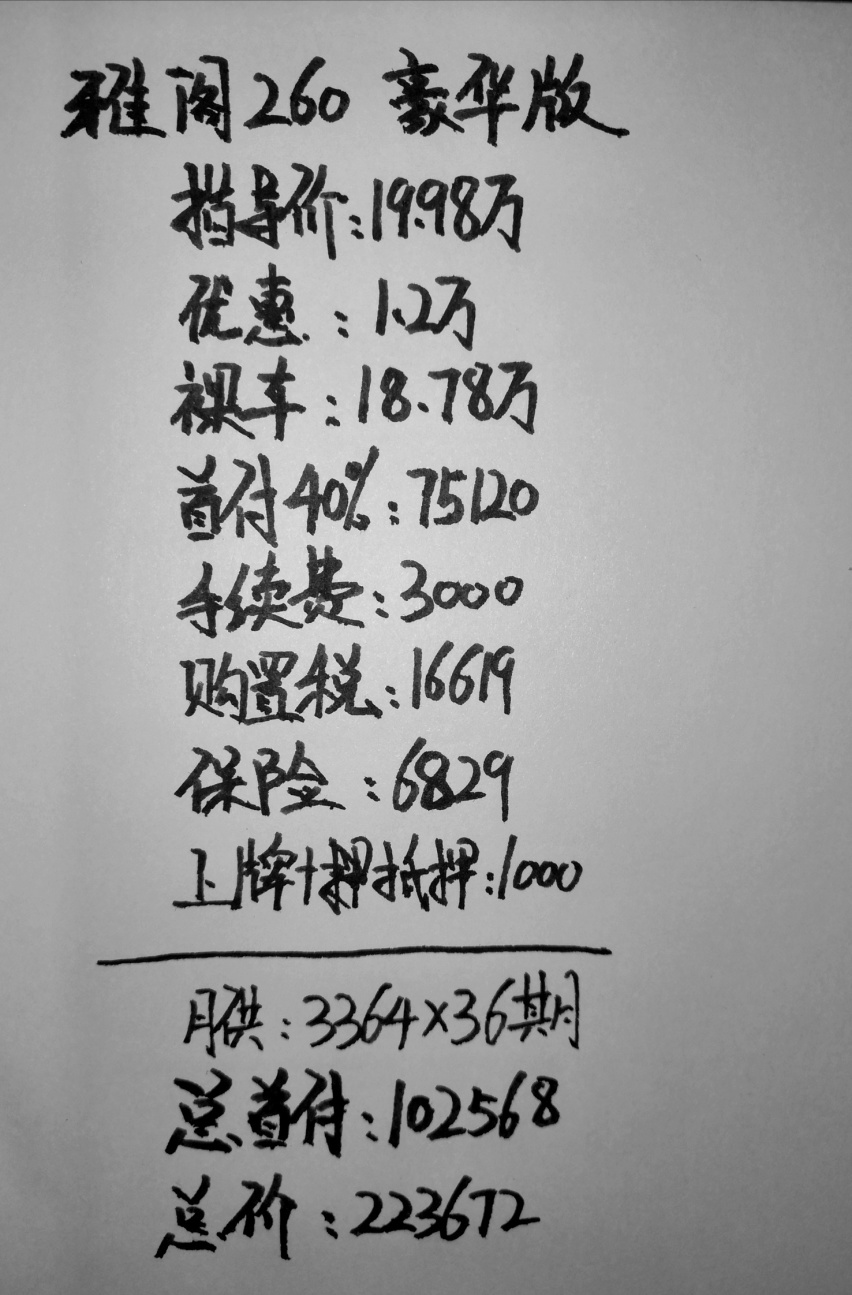 雅阁260 豪华版
指导价:19.98万
优惠:1.2万
裸车:18.78万
首付40%:75120
手续费:3000
购置税:16619
保险:6829
上牌+押抵押:1000
月供:3364×36期
总首付:102568
总价:223672